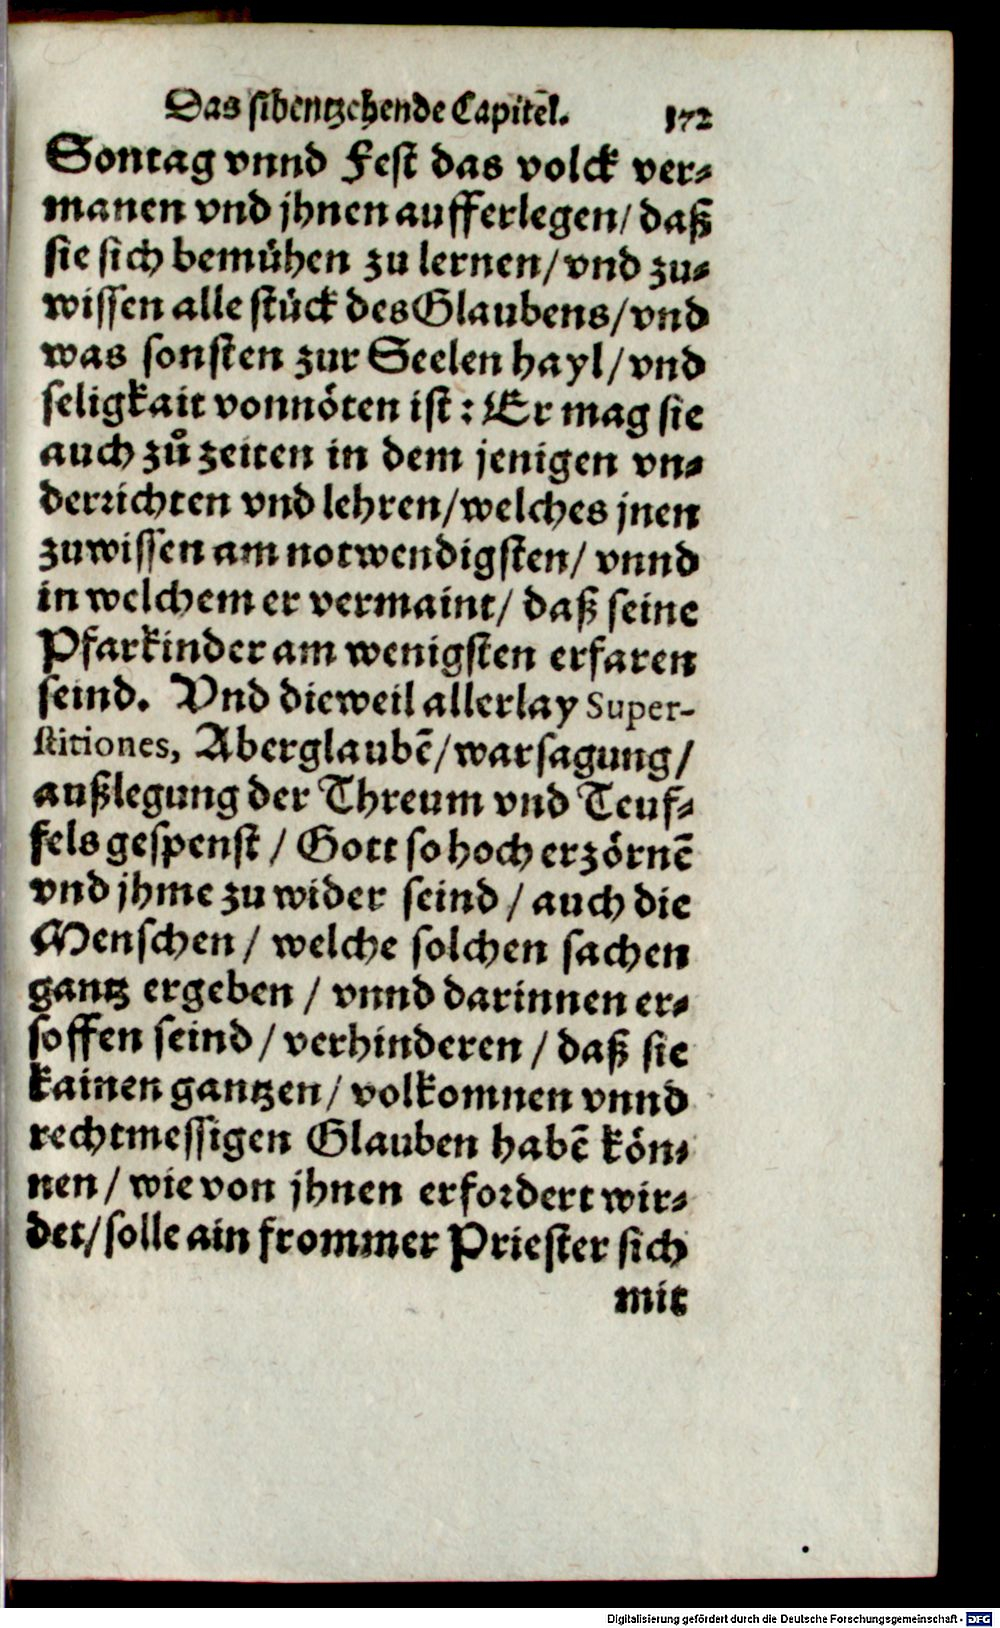 Das sibentzehende Capitel. 172
Sontag vnnd Fest das volck ver-
manen vnd jhnen aufferlegen/ daß
sie sich bemühen zu lernen/ vnd zu-
wissen alle stück des Glaubens/ vnd
was sonsten zur Seelen hayl/ vnd
seligkait vonnöten ist: Er mag sie
auch zů zeiten in dem jenigen vn-
derrichten vnd lehren/ welches jnen
zuwissen am notwendigsten/ vnnd
in welchem er vermaint/ daß seine
Pfarkinder am wenigsten erfaren
seind. Vnd dieweil allerlay Super-
stitiones, Aberglaubē/ warsagung/
außlegung der Threum vnd Teuf-
fels gespenst/ Gott so hoch erzörnē
vnd jhme zu wider seind/ auch die
Menschen/ welche solchen sachen
gantz ergeben/ vnnd darinnen er-
soffen seind/ verhinderen/ daß sie
kainen gantzen/ volkomnen vnnd
rechtmessigen Glauben habē kön-
nen/ wie von jhnen erfordert wir-
det/ solle ain frommer Priester sich
mit
Digitalisierung gefördert durch die Deutsche Forschungsgemeinschaft - DFG